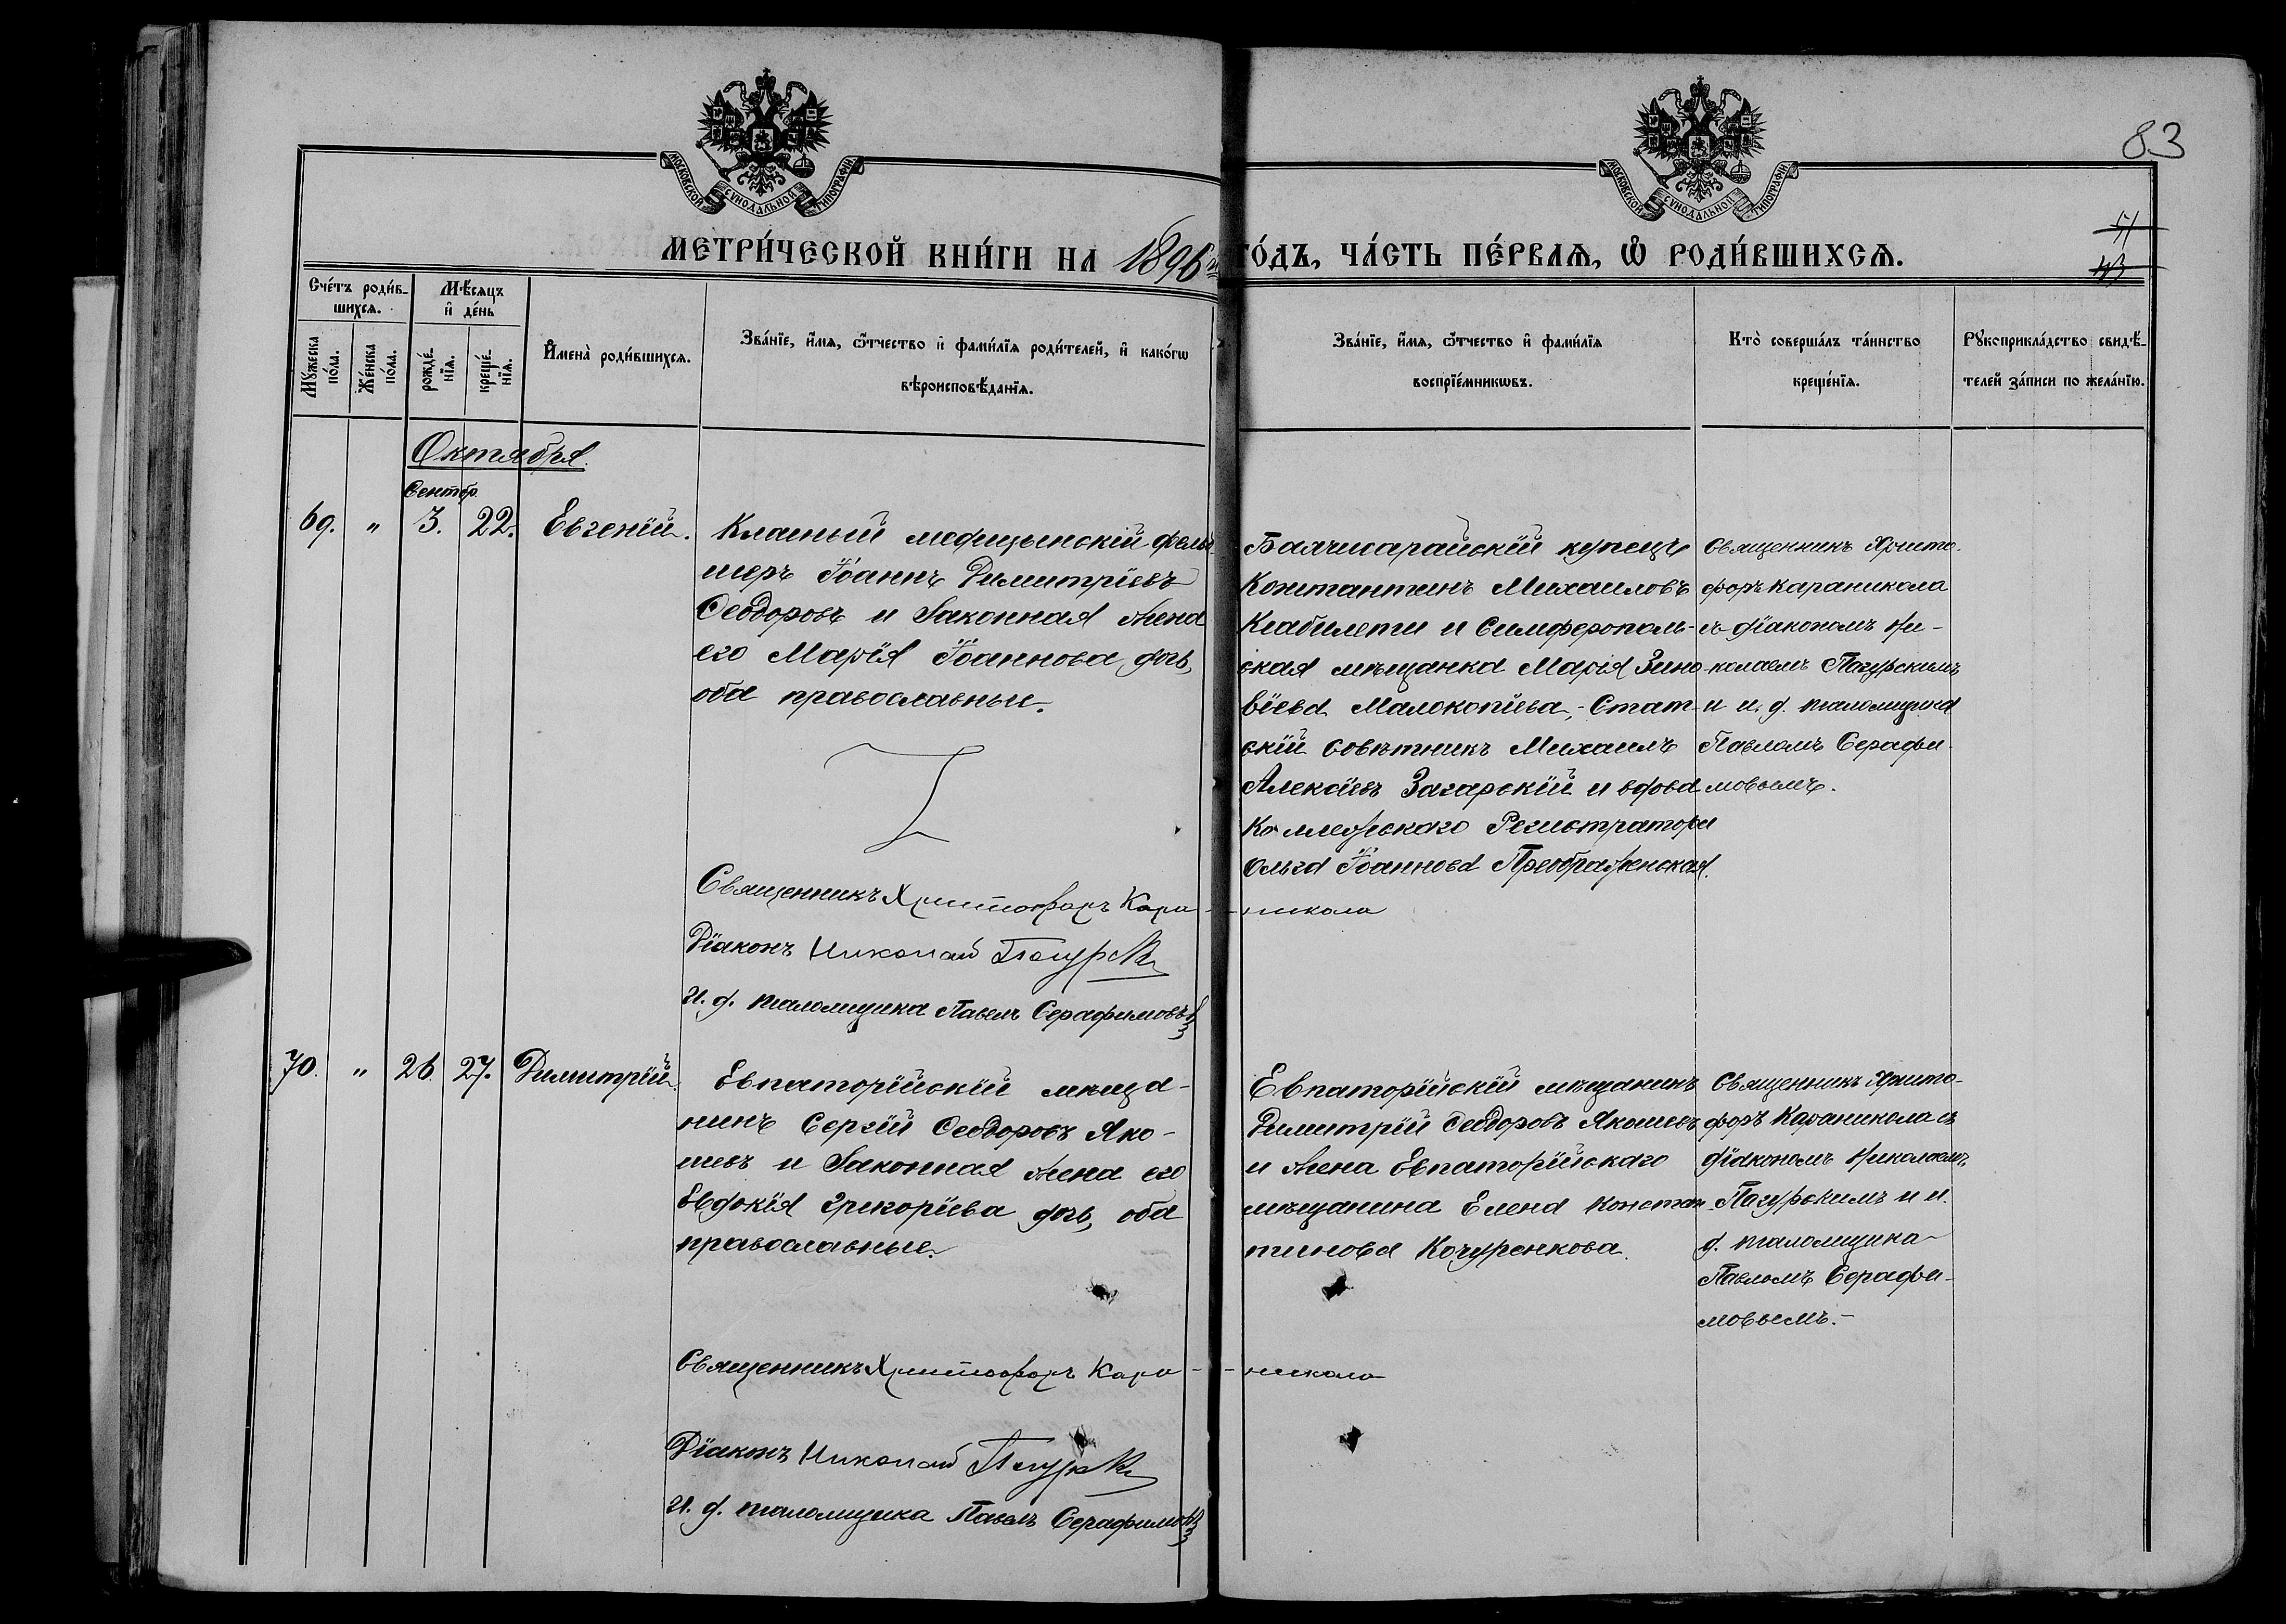 83
МОСКОВСКОЙ СѴНОДАЛЬНОЙ ТИПОГРАФІИ
МОСКОВСКОЙ СѴНОДАЛЬНОЙ ТИПОГРАФІИ
МЕТРИ́ЧЕСКОЙ КНИ́ГИ НА 1896 ГО́ДЪ, ЧА́СТЬ ПЕ́РВАѦ, Ѡ РОДИ́ВШИХСѦ.
Сче́тъ роди́в-
шихсѧ.
Мѣ́сѧцъ
и҆ де́нь
Мꙋ́жеска
по́ла.
Же́нска
по́ла.
рожде́-
нїѧ.
креще́-
нїѧ.
И҆мена̀ роди́вшихсѧ.
Зва́нїе, и҆́мѧ, ѻ҆́тчество и҆ фами́лїѧ роди́телей, и҆ како́гѡ
вѣроисповѣ́данїѧ.
Зва́нїе, и҆́мѧ, ѻ҆́тчество и҆ фами́лїѧ
воспрїе́мникѡвъ.
Кто̀ соверша́лъ та́инство
креще́нїѧ.
Рꙋкоприкла́дство свидѣ́-
телей за́писи по жела́нїю.
Октября.
Сентбр.
69. " 3. 22. Евгеній.
Класный медицынскій фельд
шеръ Іоаннъ Димитріевъ
Ѳеодоровъ и законная жена
его Марія Іоаннова дочь,
оба православные.
Священникъ Христофоръ Кара-
Діаконъ Николай
И. д. псаломщика Павелъ Серафимовъ
Бахчисарайскій купецъ
Константинъ Михаиловъ
Кіабилети и Симферополь-
ская мѣщанка Марія Зино
віева Малокопіева, Стат-
скій совѣтникъ Михаилъ
Алексіевъ Загарскій и вдова
Коллежскаго Регистратора
Ольга Іоаннова Преображенская.
-никола
Священникъ Христо-
форъ Караникола
съ діакономъ Ни-
колаемъ Пагурскимъ
и и. д. псаломщика
Павломъ Серафи-
мовымъ.
70. " 26. 27. Димитрій.
Евпаторійскій мѣща-
нинъ Сергій Ѳеодоровъ Яко-
шевъ и законная жена его
Евдокія Григоріева дочь, оба
православные.
Священникъ Христофоръ Кара-
Діаконъ Николай
И. д. псаломщика Павелъ Серафимовъ
Евпаторійскій мѣщанинъ
Димитрій Ѳеодоровъ Якошевъ
и жена Евпаторійскаго
мѣщанина Елена Констан
тинова Кочуренкова.
-никола
Священникъ Христо-
форъ Караникола съ
діакономъ Николаемъ
Пагурскимъ и и.
д. псаломщика
Павломъ Серафи-
мовымъ.-